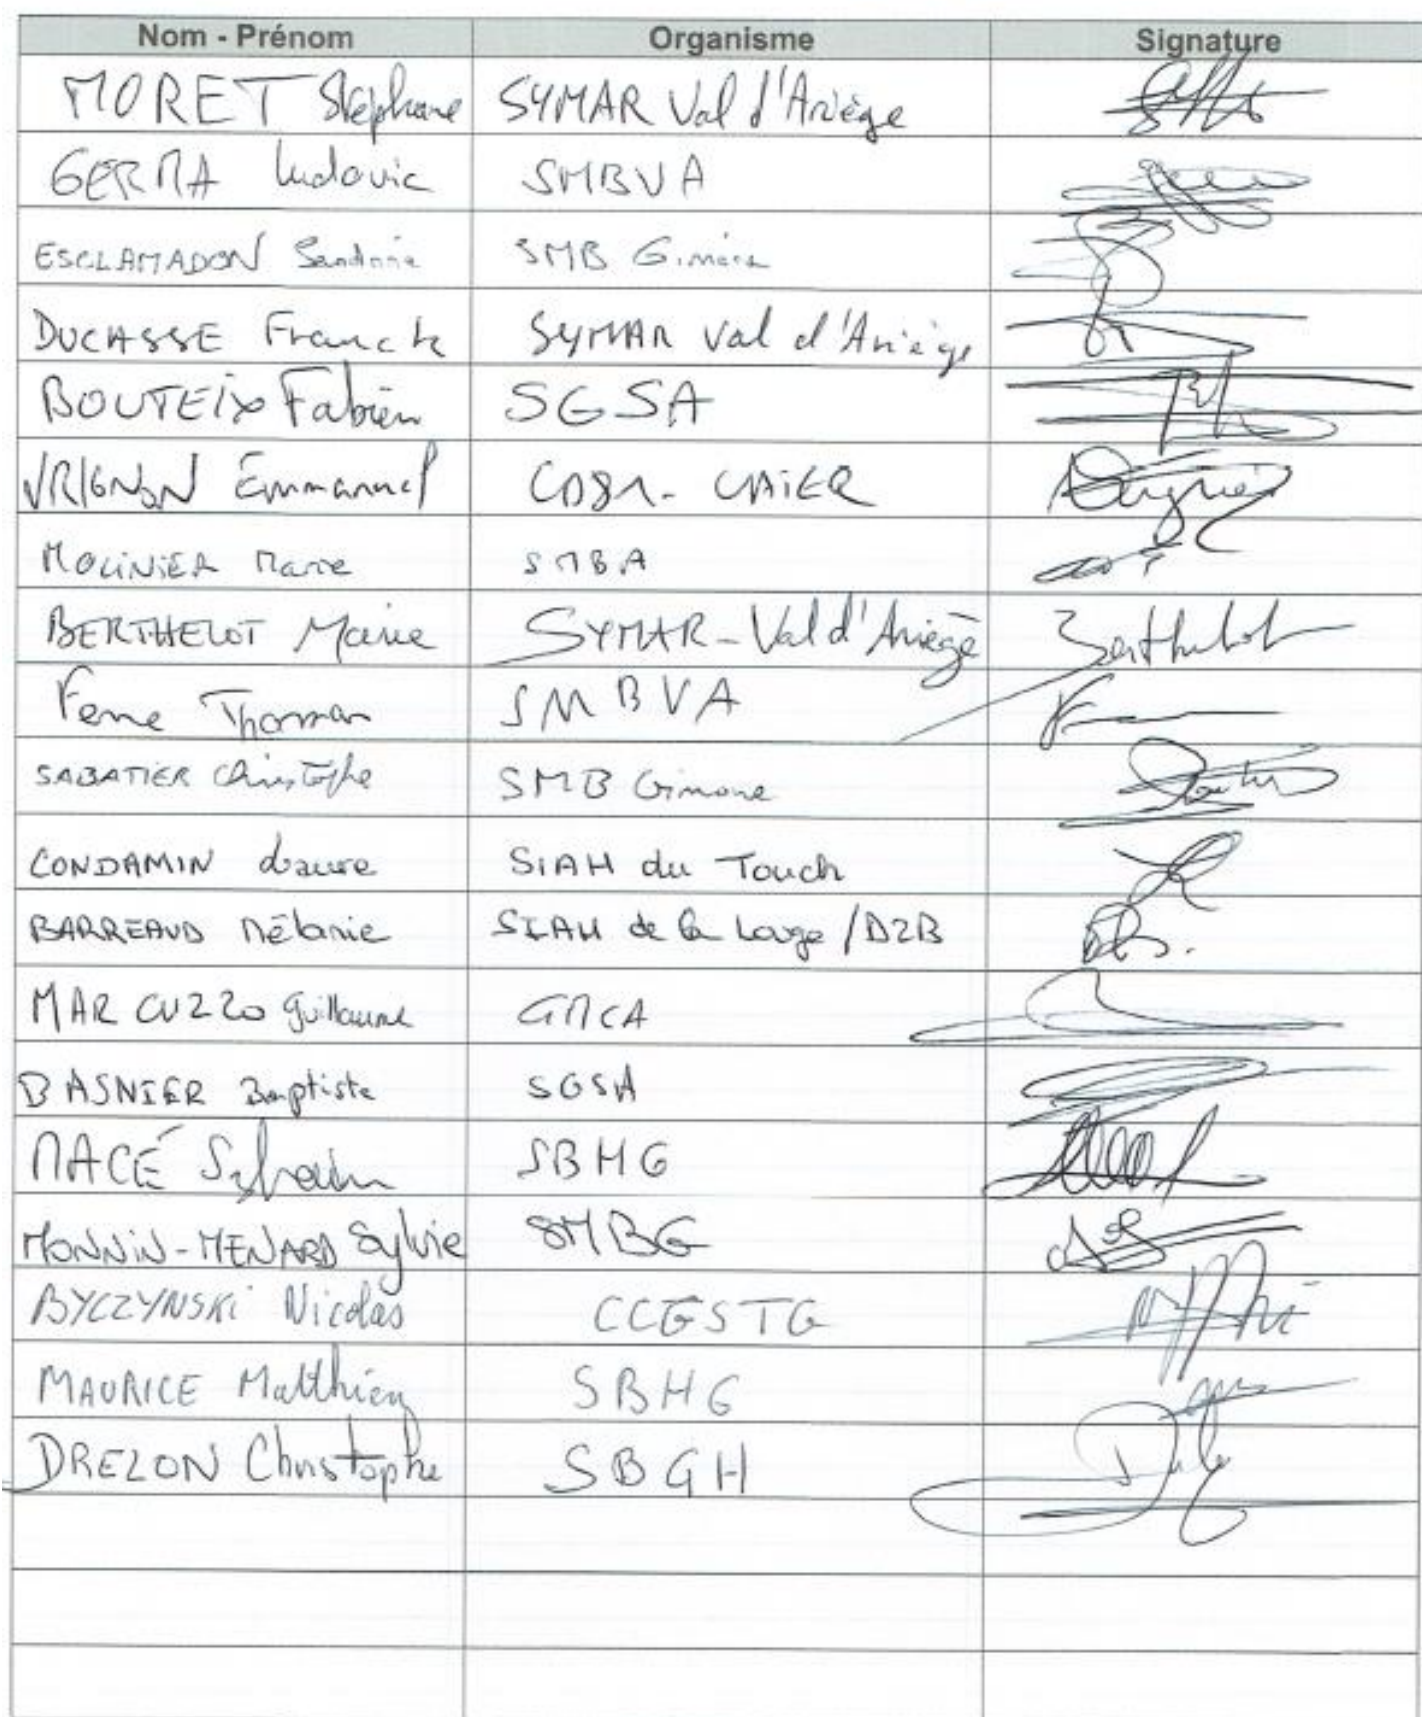 Nom - Prénom Organisme Signature
MORET Stéphane SYMAR Val d'Ariège
GERMA Ludovic SMBVA
ESCLAMADON Sandrine SMB Gimone
DUCASSE Franck SYMAR Val d'Ariège
BOUTEIX Fabien SGSA
VRIGNON Emmanuel CD81 - CATER
MOLINIER Marie SMBA
BERTHELOT Marie SYMAR - Val d'Ariège Berthelot
Ferre Thomas SMBVA
SABATIER Christophe SMB Gimone
CONDAMIN Laure SIAH du Touch
BARREAUD Mélanie SIAH de la Louge / D2B
MARCUZZO Guillaume GMCA
BASNIER Baptiste SGSA
MACÉ Sylvain SBHG
MONNIN-MENARD Sylvie SMBG
BYCZYNSKI Nicolas CCGSTG
MAURICE Matthieu SBHG
DREZON Christophe SBGH